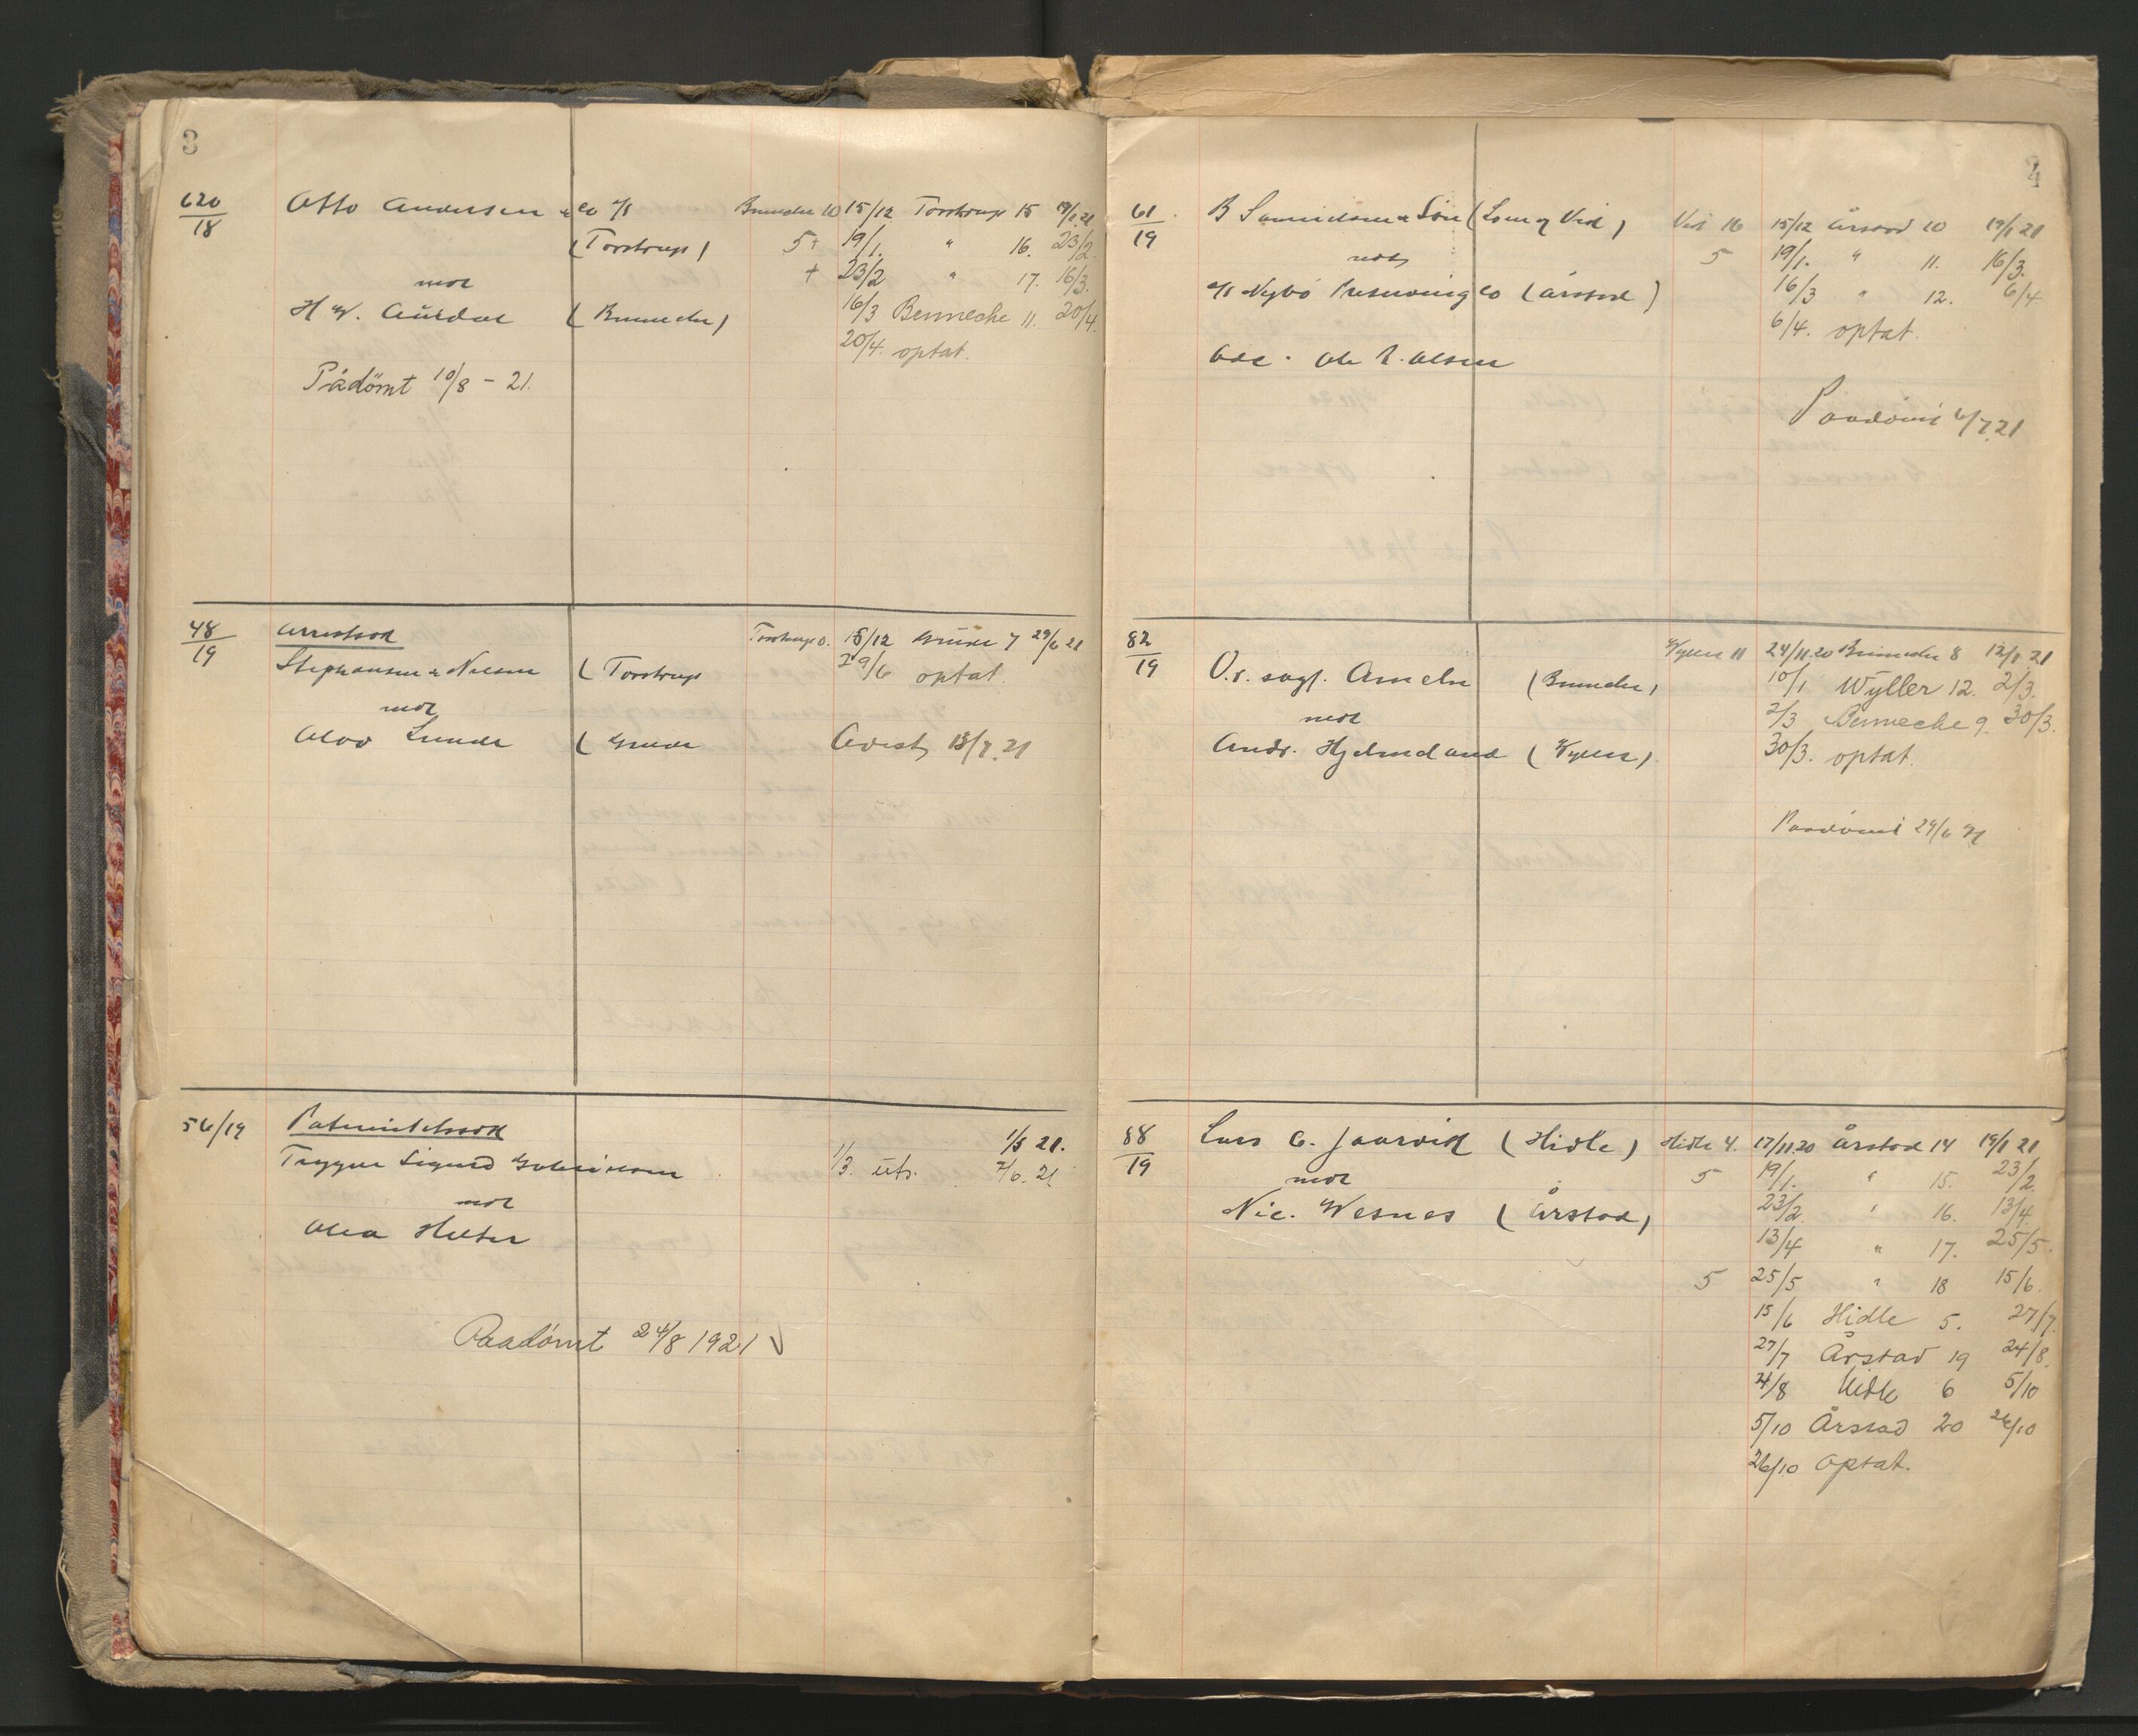 3
620/18 Otto Andersen & Co A/S Bennecke 10 15/12 Torstrup 15 19/1 21
(Torstrup) 5+ 19/1. " 16. 23/2.
mot + 23/2 " 17. 16/3.
H. W. (Bennecke) 16/3 Bennecke 11. 20/4.
20/4. optat.
Pådömt 10/8 - 21.
48/19 Arrestsak Torstrup 15/12 Grude 7 29/6 21
Stephansen & Nilsen (Torstrup 29/6 optat.
mot
Olav Lunde (Grude 13/7.21
56/19 1/5 21.
Trygve Sigurd 1/3. uts. 21
mot
Olea
Paadömt 24/8 1921
4
61/19 B Samuelsen & Sön (Lom og Vid) Vid 16 15/12 Årstad 10 19/1 21
mot 5 19/1. " 11. 16/3.
A/S Nybö Preserving Co (Årstad) 16/3 " 12. 6/4.
6/4. optat.
Ole R. Olsen
Paadömt 6/7.21
82/19 Wyller 11 24/11.20 Bennecke 8 12/1 21
O.r. sagf. Ameln (Bennecke) 10/1 Wyller 12. 2/3.
mot 2/3 Bennecke 9. 30/3.
Andr. Hjelmeland (Wyller) 30/3. optat.
Paadömt 29/6 21
88/19 Lars C. Jaarvik (Hidle) Hidle 4. 17/11.20 Årstad 14 19/1 21
mot 5 19/1. " 15. 23/2.
Nic. Wesnes (Årstad) 23/2. " 16. 13/4.
13/4 " 17. 25/5.
5 25/5 " 18 15/6.
15/6 Hidle 5. 27/7.
27/7 Årstad 19 24/8.
24/8 Hidle 6 5/10
5/10 Årstad 20 26/10
26/10 optat.